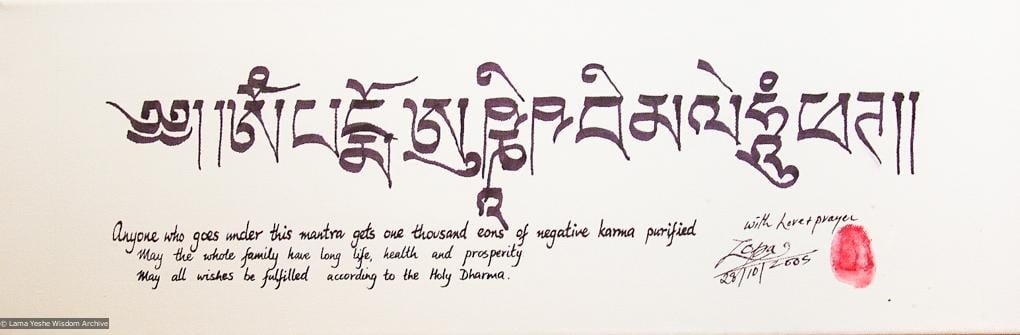 ༄༅། །ཨོཾ་པདྨོ་ཨུཥྞཱིཥ་བི་མ་ལེ་ཧཱུྃ་ཕཊ།།
Anyone who goes under this mantra gets one thousand eons of negative karma purified
May the whole family have long life, health and prosperity
May all wishes be fulfilled according to the Holy Dharma.
with Love + prayer
Zopa
28/10/2005
© Lama Yeshe Wisdom Archive